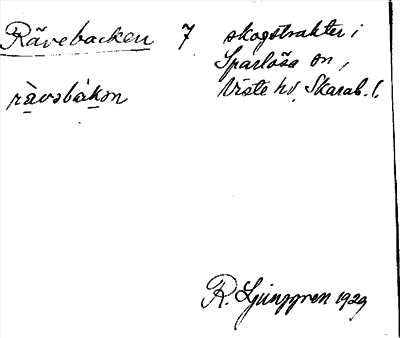 Rävebacken 7 skogstrakter i
Sparlösa sn,
Viste hd, Skarab. l.
rävəbàkən
R. Ljunggren 1929